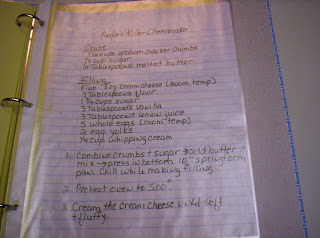 Killer Cheesecake
Crust
cups graham cracker crumbs
cup sugar
6 Tablespoons melted butter
Filling
Five 8oz cream cheese (room temp)
3 Tablespoons flour
1 3/4 cups sugar
3 Tablespoons vanilla
3 Tablespoons lemon juice
5 whole eggs (room temp)
2 egg yolks
1/4 cup whipping cream
1. Combine crumbs + sugar → add butter →
mix → press in bottom 10" springform
pan. Chill while making filling.
2. Preheat oven to 500°
3. Cream the cream cheese until soft
+ fluffy.